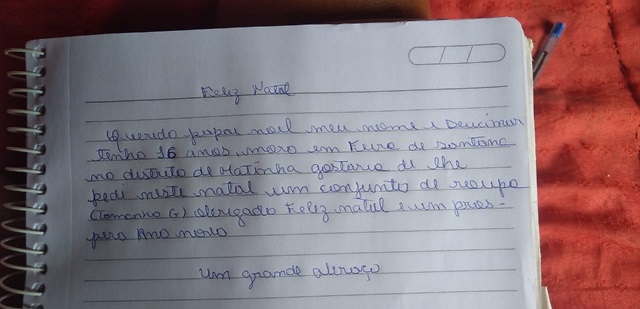 Feliz Natal
Querido papai noel meu nome é Deucimar
tenho 16 anos, moro em Feira de Santana
no distrito de Matinha gostaria de lhe
pedi neste natal um conjunto de roupa
(Tamanho G) obrigado Feliz natal e um pros-
pero Ano novo
Um grande abraço